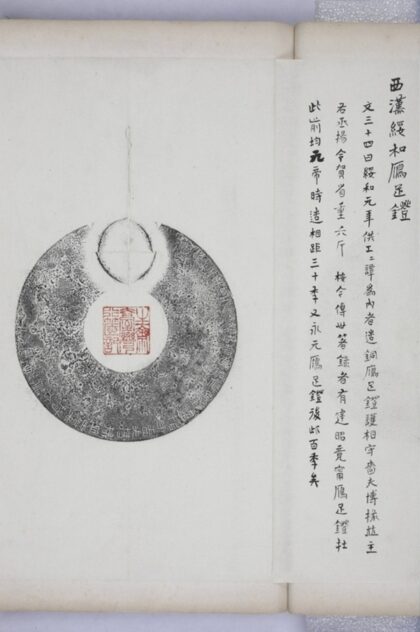 西漢綏和鴈足鐙
文三十四曰綏和元年供工工譚為內者造銅鴈足鐙護相守嗇夫博掾並主
右丞揚令賀省重六斤 按今傳世著錄者有建昭竟寧鴈足鐙社
此前均元帝時造相距三十年又永元鴈足鐙後此百年矣